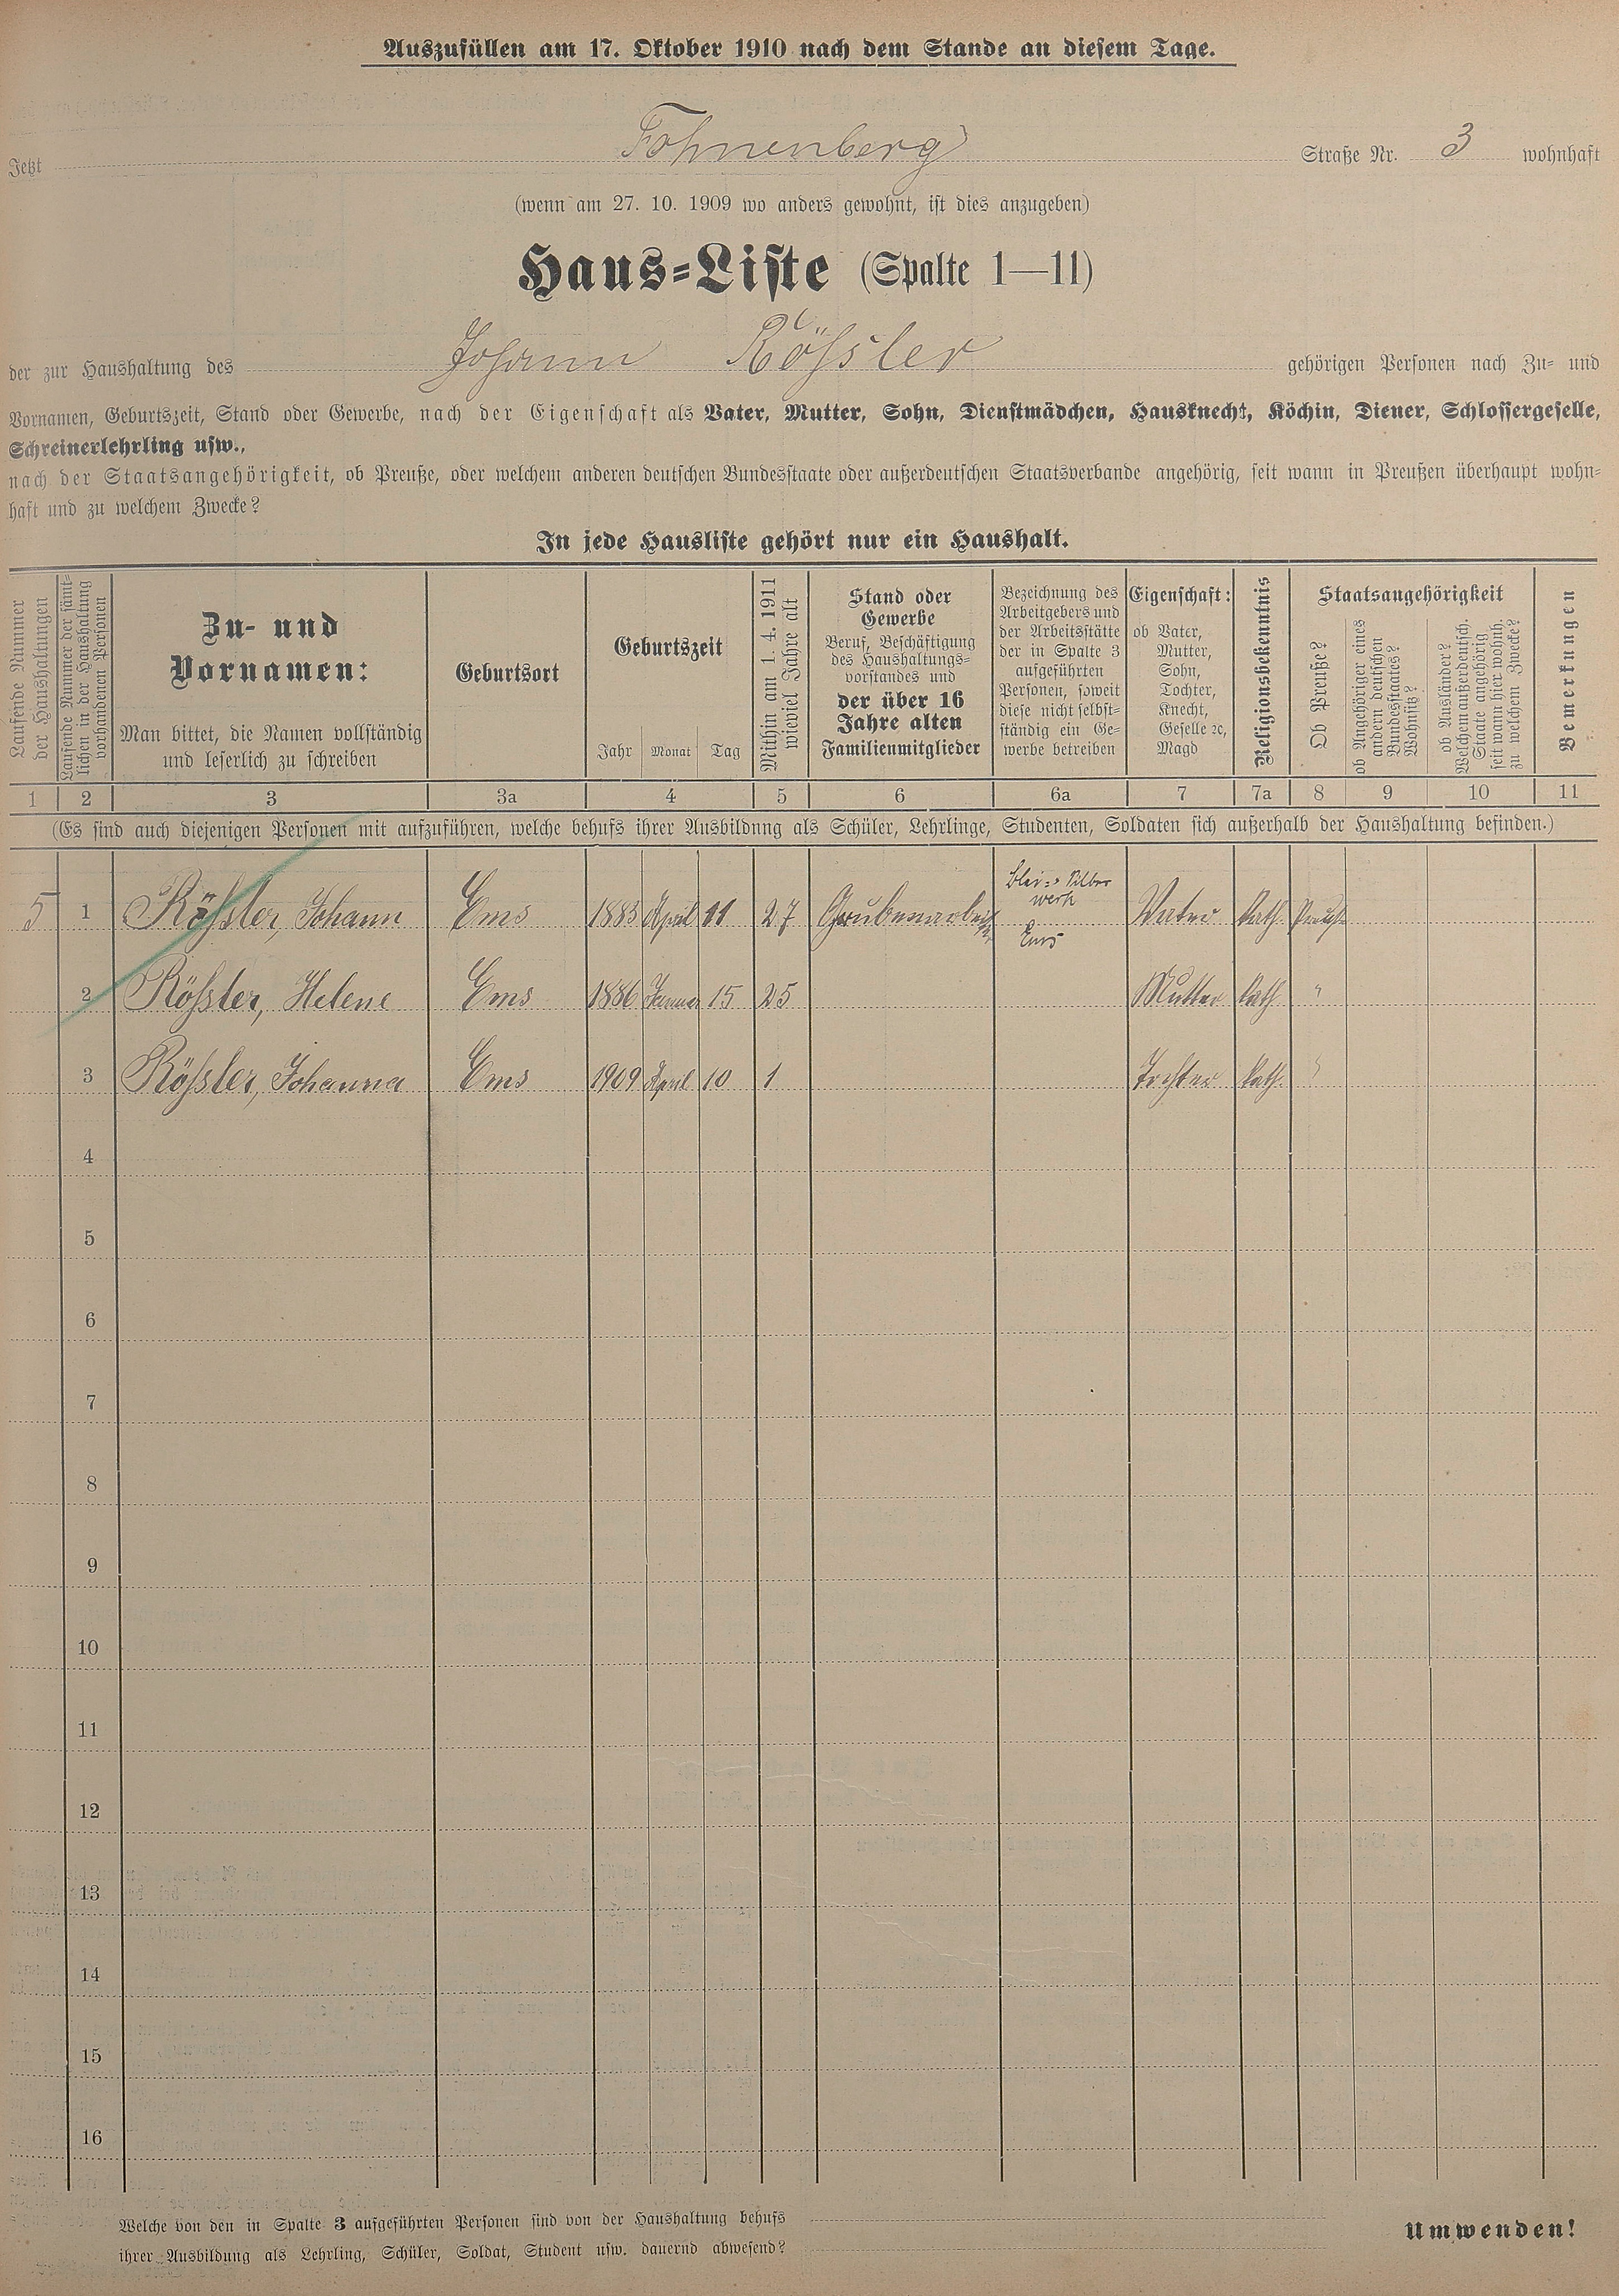 Auszufüllen am 17. Oktober 1910 nach dem Stande an diesem Tage.
Jetzt Fohnenberg Straße Nr. 3 wohnhaft
(wenn am 27. 10. 1909 wo anders gewohnt, ist dies anzugeben)
Haus-Liste (Spalte 1—11)
der zur Haushaltung des Johann Rößler gehörigen Personen nach Zu- und
Vornamen, Geburtszeit, Stand oder Gewerbe, nach der Eigenschaft als Vater, Mutter, Sohn, Dienstmädchen, Hausknecht, Köchin, Diener, Schlossergeselle,
Schreinerlehrling usw.,
nach der Staatsangehörigkeit, ob Preuße, oder welchem anderen deutschen Bundesstaate oder außerdeutschen Staatsverbande angehörig, seit wann in Preußen überhaupt wohn-
haft und zu welchem Zwecke?
In jede Hausliste gehört nur ein Haushalt.
Laufende Nummer
der Haushaltungen
Laufende Nummer der sämt-
lichen in der Haushaltung
vorhandenen Personen
Zu- und
Vornamen:
Man bittet, die Namen vollständig
und leserlich zu schreiben
Geburtsort
Geburtszeit
Jahr Monat Tag
Mithin am 1. 4. 1911
wieviel Jahre alt
Stand oder
Gewerbe
Beruf, Beschäftigung
des Haushaltungs-
vorstandes und
der über 16
Jahre alten
Familienmitglieder
Bezeichnung des
Arbeitgebers und
der Arbeitsstätte
der in Spalte 3
aufgeführten
Personen, soweit
diese nicht selbst-
ständig ein Ge-
werbe betreiben
Eigenschaft:
ob Vater,
Mutter,
Sohn,
Tochter,
Knecht,
Geselle ꝛc,
Magd
Religionsbekenntnis
Staatsangehörigkeit
Ob Preuße?
ob Angehöriger eines
andern deutschen
Bundesstaates?
Wohnsitz?
ob Ausländer?
Welchem außerdeutsch.
Staate angehörig
seit wann hier wohnh.
zu welchem Zwecke?
Bemerkungen
1 2 3 3a 4 5 6 6a 7 7a 8 9 10 11
(Es sind auch diejenigen Personen mit aufzuführen, welche behufs ihrer Ausbildung als Schüler, Lehrlinge, Studenten, Soldaten sich außerhalb der Haushaltung befinden.)
5 1 Rößler, Johann Ems 1883 April 11 27 Grubenarbeiter Blei- Silber werk Ems Vater Kath. Preuße
2 Rößler, Helene Ems 1886 Januar 15 25 Mutter Kath. "
3 Rößler, Johanna Ems 1909 April 10 1 Tochter Kath. "
4
5
6
7
8
9
10
11
12
13
14
15
16
Welche von den in Spalte 3 aufgeführten Personen sind von der Haushaltung behufs
ihrer Ausbildung als Lehrling, Schüler, Soldat, Student usw. dauernd abwesend?
Umwenden!